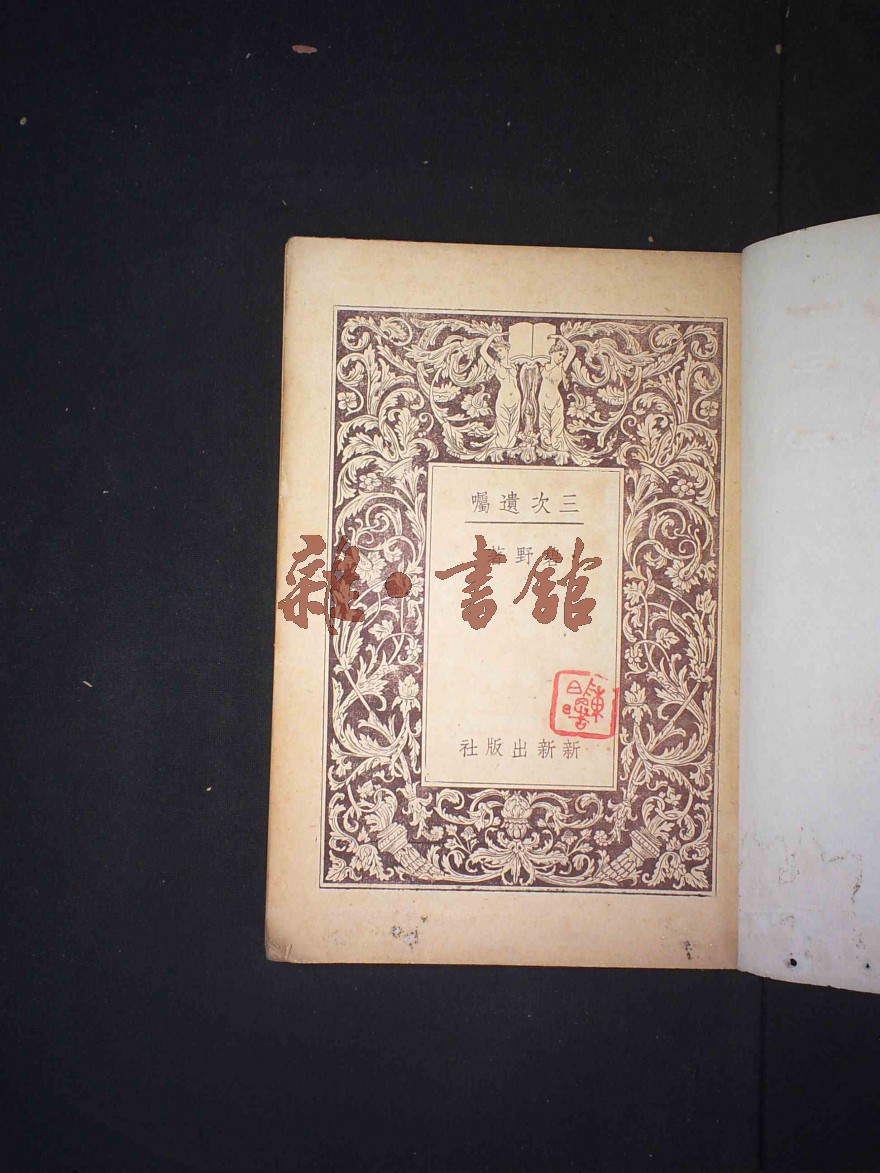 三次遺囑
野
雜·書館
新新出版社